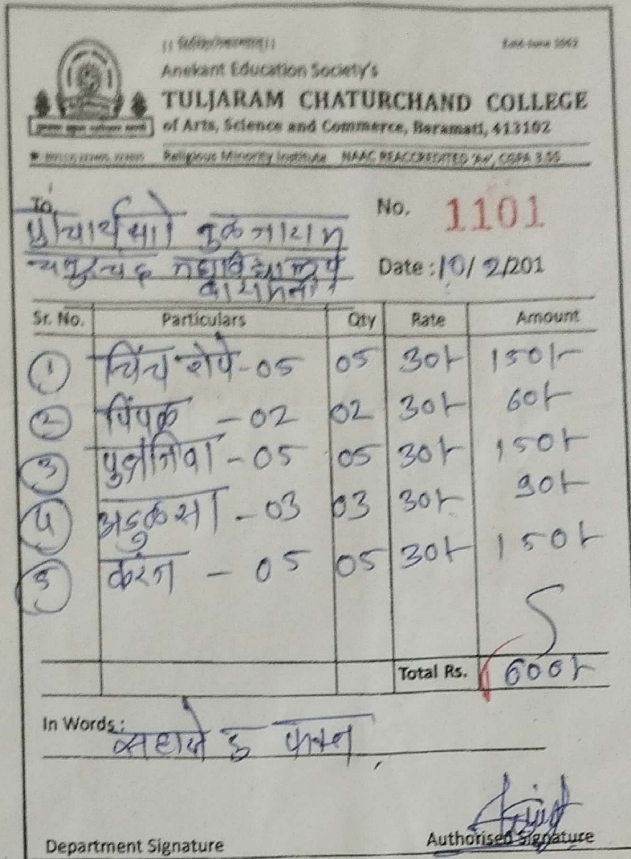 Anekant Education Society's
TULJARAM CHATURCHAND COLLEGE
of Arts, Science and Commerce, Baramati, 413102
Religious Minority Institute NAAC REACCREDITED 'A+', CGPA 3.55
To,
No. 1101
Date : 10/2/201
Sr. No. Particulars Qty Rate Amount
1 चिंच रोपे - 05 05 30/- 150/-
2 पिंपळ - 02 02 30/- 60/-
3 पुत्रंजिवा - 05 05 30/- 150/-
4 अडुळसा - 03 03 30/- 90/-
5 करंज - 05 05 30/- 150/-
Total Rs. 600/-
In Words : सहाशे रु फक्त
Department Signature Authorised Signature